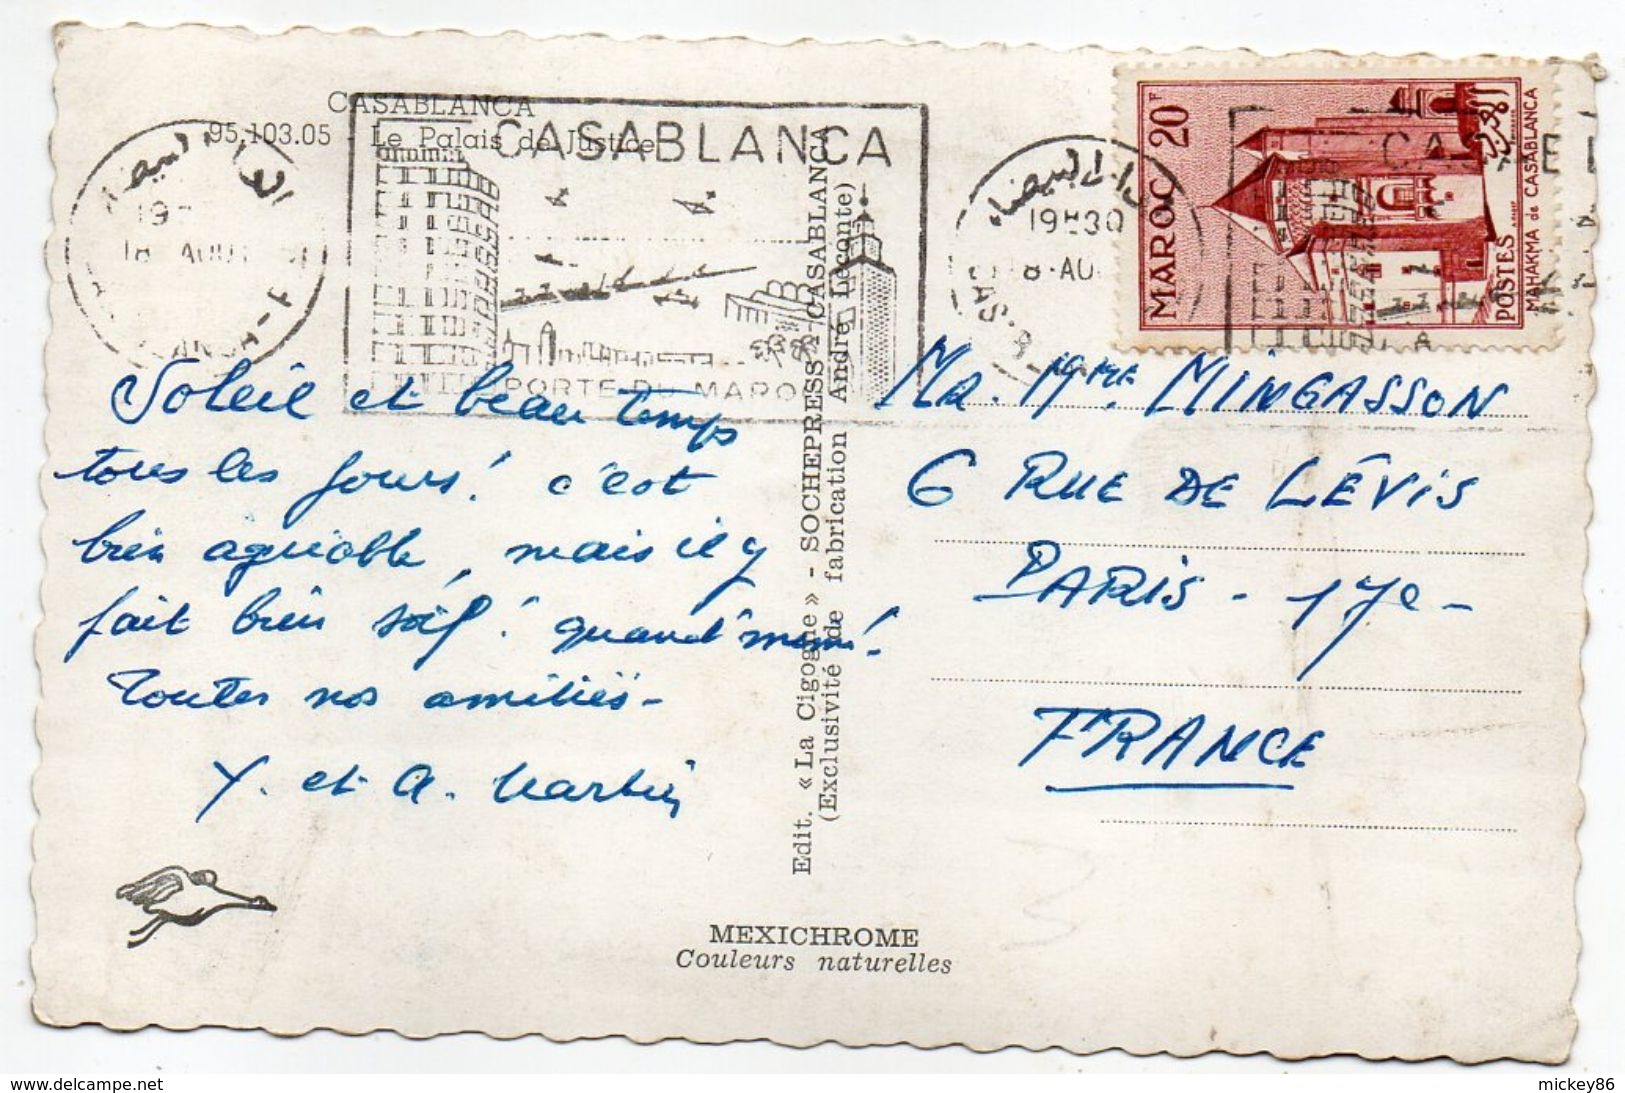 CASABLANCA
95.103.05 Le Palais de Justice
CASABLANCA
PORTE DU MAROC
19
18 AOUT
19H30
18 AO
MAROC 20F
POSTES
MAHAKMA de CASABLANCA
Soleil et beau temps
tous les jours! c'est
bien agréable, mais il y
fait bien soif! quand même!
Toutes nos amitiés -
Y. et A. Martin
Edit. « La Cigogne » - SOCHEPRESS - CASABLANCA
(Exclusivité de fabrication André Leconte)
Mr. Mme MINGASSON
6 RUE DE LÉVIS
PARIS - 17e -
FRANCE
MEXICHROME
Couleurs naturelles
www.delcampe.net
mickey86